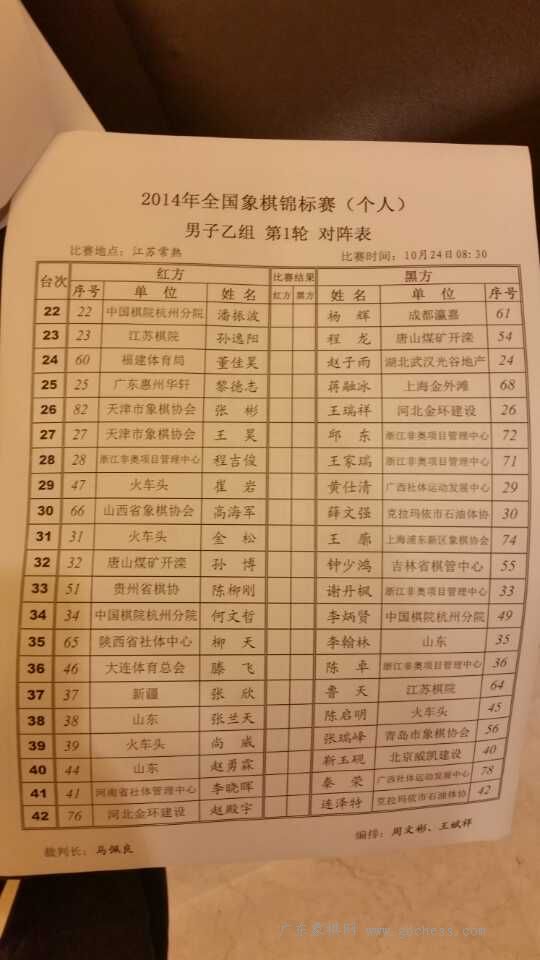 2014年全国象棋锦标赛（个人）
男子乙组 第1轮 对阵表
比赛地点：江苏常熟 比赛时间：10月24日08:30
台次 红方 比赛结果 黑方
序号 单位 姓名 红方 黑方 姓名 单位 序号
22 22 中国棋院杭州分院 潘振波 杨辉 成都瀛嘉 61
23 23 江苏棋院 孙逸阳 程龙 唐山煤矿开滦 54
24 60 福建体育局 董佳昊 赵子雨 湖北武汉光谷地产 24
25 25 广东惠州华轩 黎德志 蒋融冰 上海金外滩 68
26 82 天津市象棋协会 张彬 王瑞祥 河北金环建设 26
27 27 天津市象棋协会 王昊 邱东 浙江非奥项目管理中心 72
28 28 浙江非奥项目管理中心 程吉俊 王家瑞 浙江非奥项目管理中心 71
29 47 火车头 崔岩 黄仕清 广西社体运动发展中心 29
30 66 山西省象棋协会 高海军 薛文强 克拉玛依市石油体协 30
31 31 火车头 金松 王廓 上海浦东新区象棋协会 74
32 32 唐山煤矿开滦 孙博 钟少鸿 吉林省棋管中心 55
33 51 贵州省棋协 陈柳刚 谢丹枫 浙江非奥项目管理中心 33
34 34 中国棋院杭州分院 何文哲 李炳贤 中国棋院杭州分院 49
35 65 陕西省社体中心 柳天 李翰林 山东 35
36 46 大连体育总会 滕飞 陈卓 浙江非奥项目管理中心 36
37 37 新疆 张欣 鲁天 江苏棋院 64
38 38 山东 张兰天 陈启明 火车头 45
39 39 火车头 尚威 张瑞峰 青岛市象棋协会 56
40 44 山东 赵勇霖 靳玉砚 北京威凯建设 40
41 41 河南省社体管理中心 李晓晖 秦荣 广西社体运动发展中心 78
42 76 河北金环建设 赵殿宇 连泽特 克拉玛依市石油体协 42
裁判长：马佩良 编排：周文彬、王斌祥
广东象棋网 www.gdchess.com